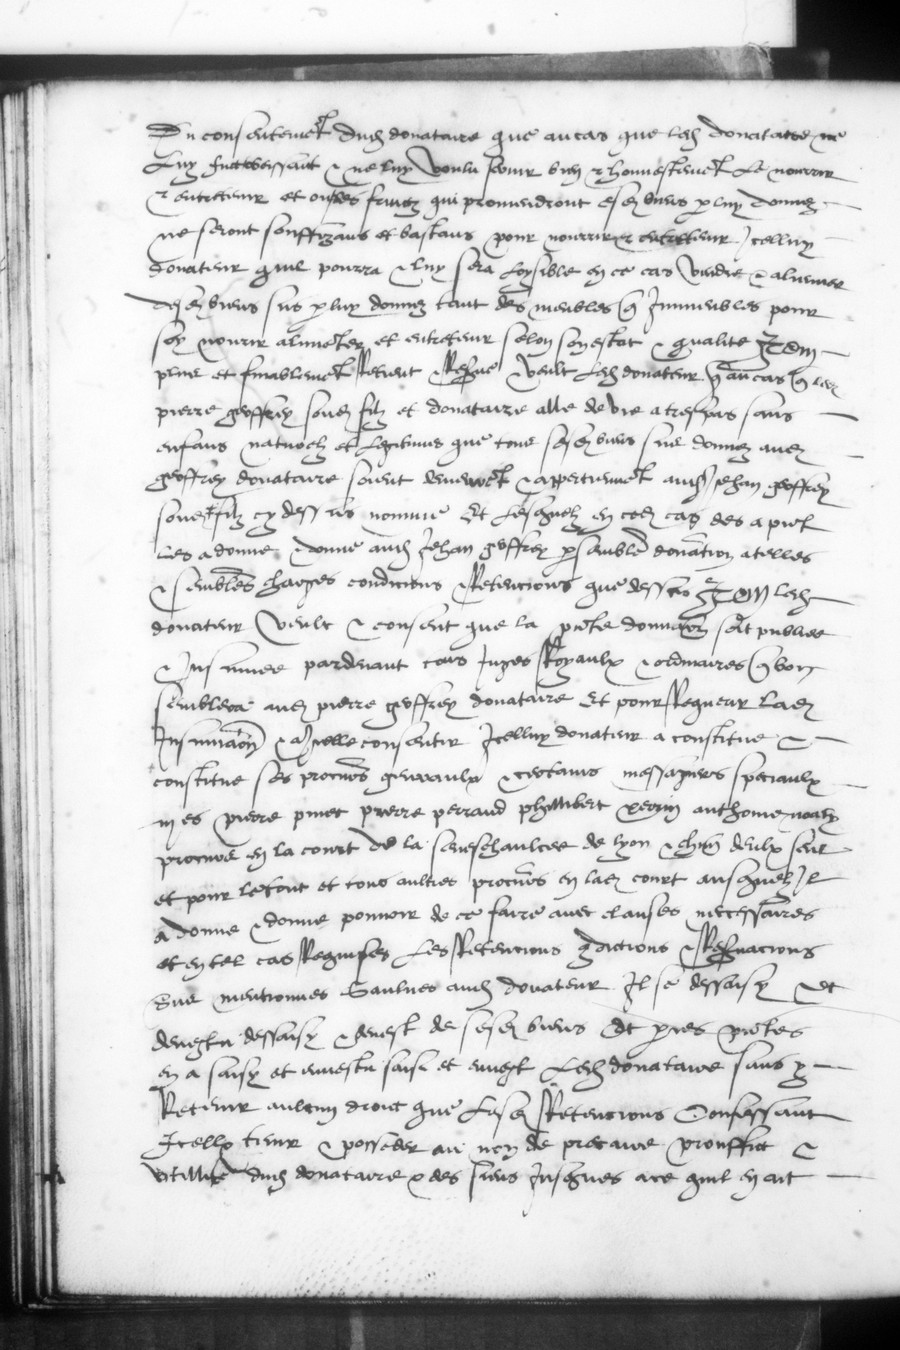 Du consentemēt dud donataire que au cas que led donataire ne
luy fut obeissant & ne luy voulu servir bien & honnestemēt le nourrir
& entretenir et ou les fruictz qui proviendront esd biens p luy donnez
ne seront souffizans et bastans pour nourrir & entretenir Jcelluy
donateur quil pourra & luy sera loysible en ce cas vendre & aliener
desd biens sus p luy donnez tant des meubles q Jmmeubles pour
soy nourir alimēter et entretenir selon son estat & qualite Jtem
plus et finablemēt Retient Reserve & veult led donateur q au cas q led
pierre geoffrey sond filz et donataire alle de vie a trespas sans
enfans naturelz et legitimes que tous sesd biens sus donnez aud
geoffrey donataire soient & appertiennēt aud Jehan geoffrey
sond filz cy dessus nomme Et lesquelz en ced cas des a pnt
les a donne & donne aud Jehan geoffrey p semblē donation a telles
& semblēs charges condicions & Retencions que dessus Jtem led
donateur veult & consent que la pnte donnation soit publiee
& Jnsinuee pardevant tous Juges Royaulx & ordinaires q bon
semblera aud pierre geoffrey donataire Et pour Requerir lad
Jnsinuation & a Jcelle consentir Jcelluy donateur a constitue &
constitue ses procurs generaulx & certains messagiers speciaulx
mes pierre pinet pierre perraud phillibert anthoine
procurs en la court de la seneschaulcee de lyon & chun deulx seul
et pour le tout et tous aultres procurs en lad court ausquelz Jl
a donne & donne povvoir de ce faire avec clauses necessaires
et en tel cas Requises les Retencions & Reservacions
sus mentionnes saulves aud donateur Jl se dessaisy & et
devestu dessaisy & devest de sesd biens Et p ces pntes
en a saisy et investu saisi et invest led donataire sans y
Retenir aulcun droit que lesd Retencions Confessant
Jceulx tenir & posseder au nom de precaire prouffict &
utillite dud donataire & des siens Jusques a ce quil en ait